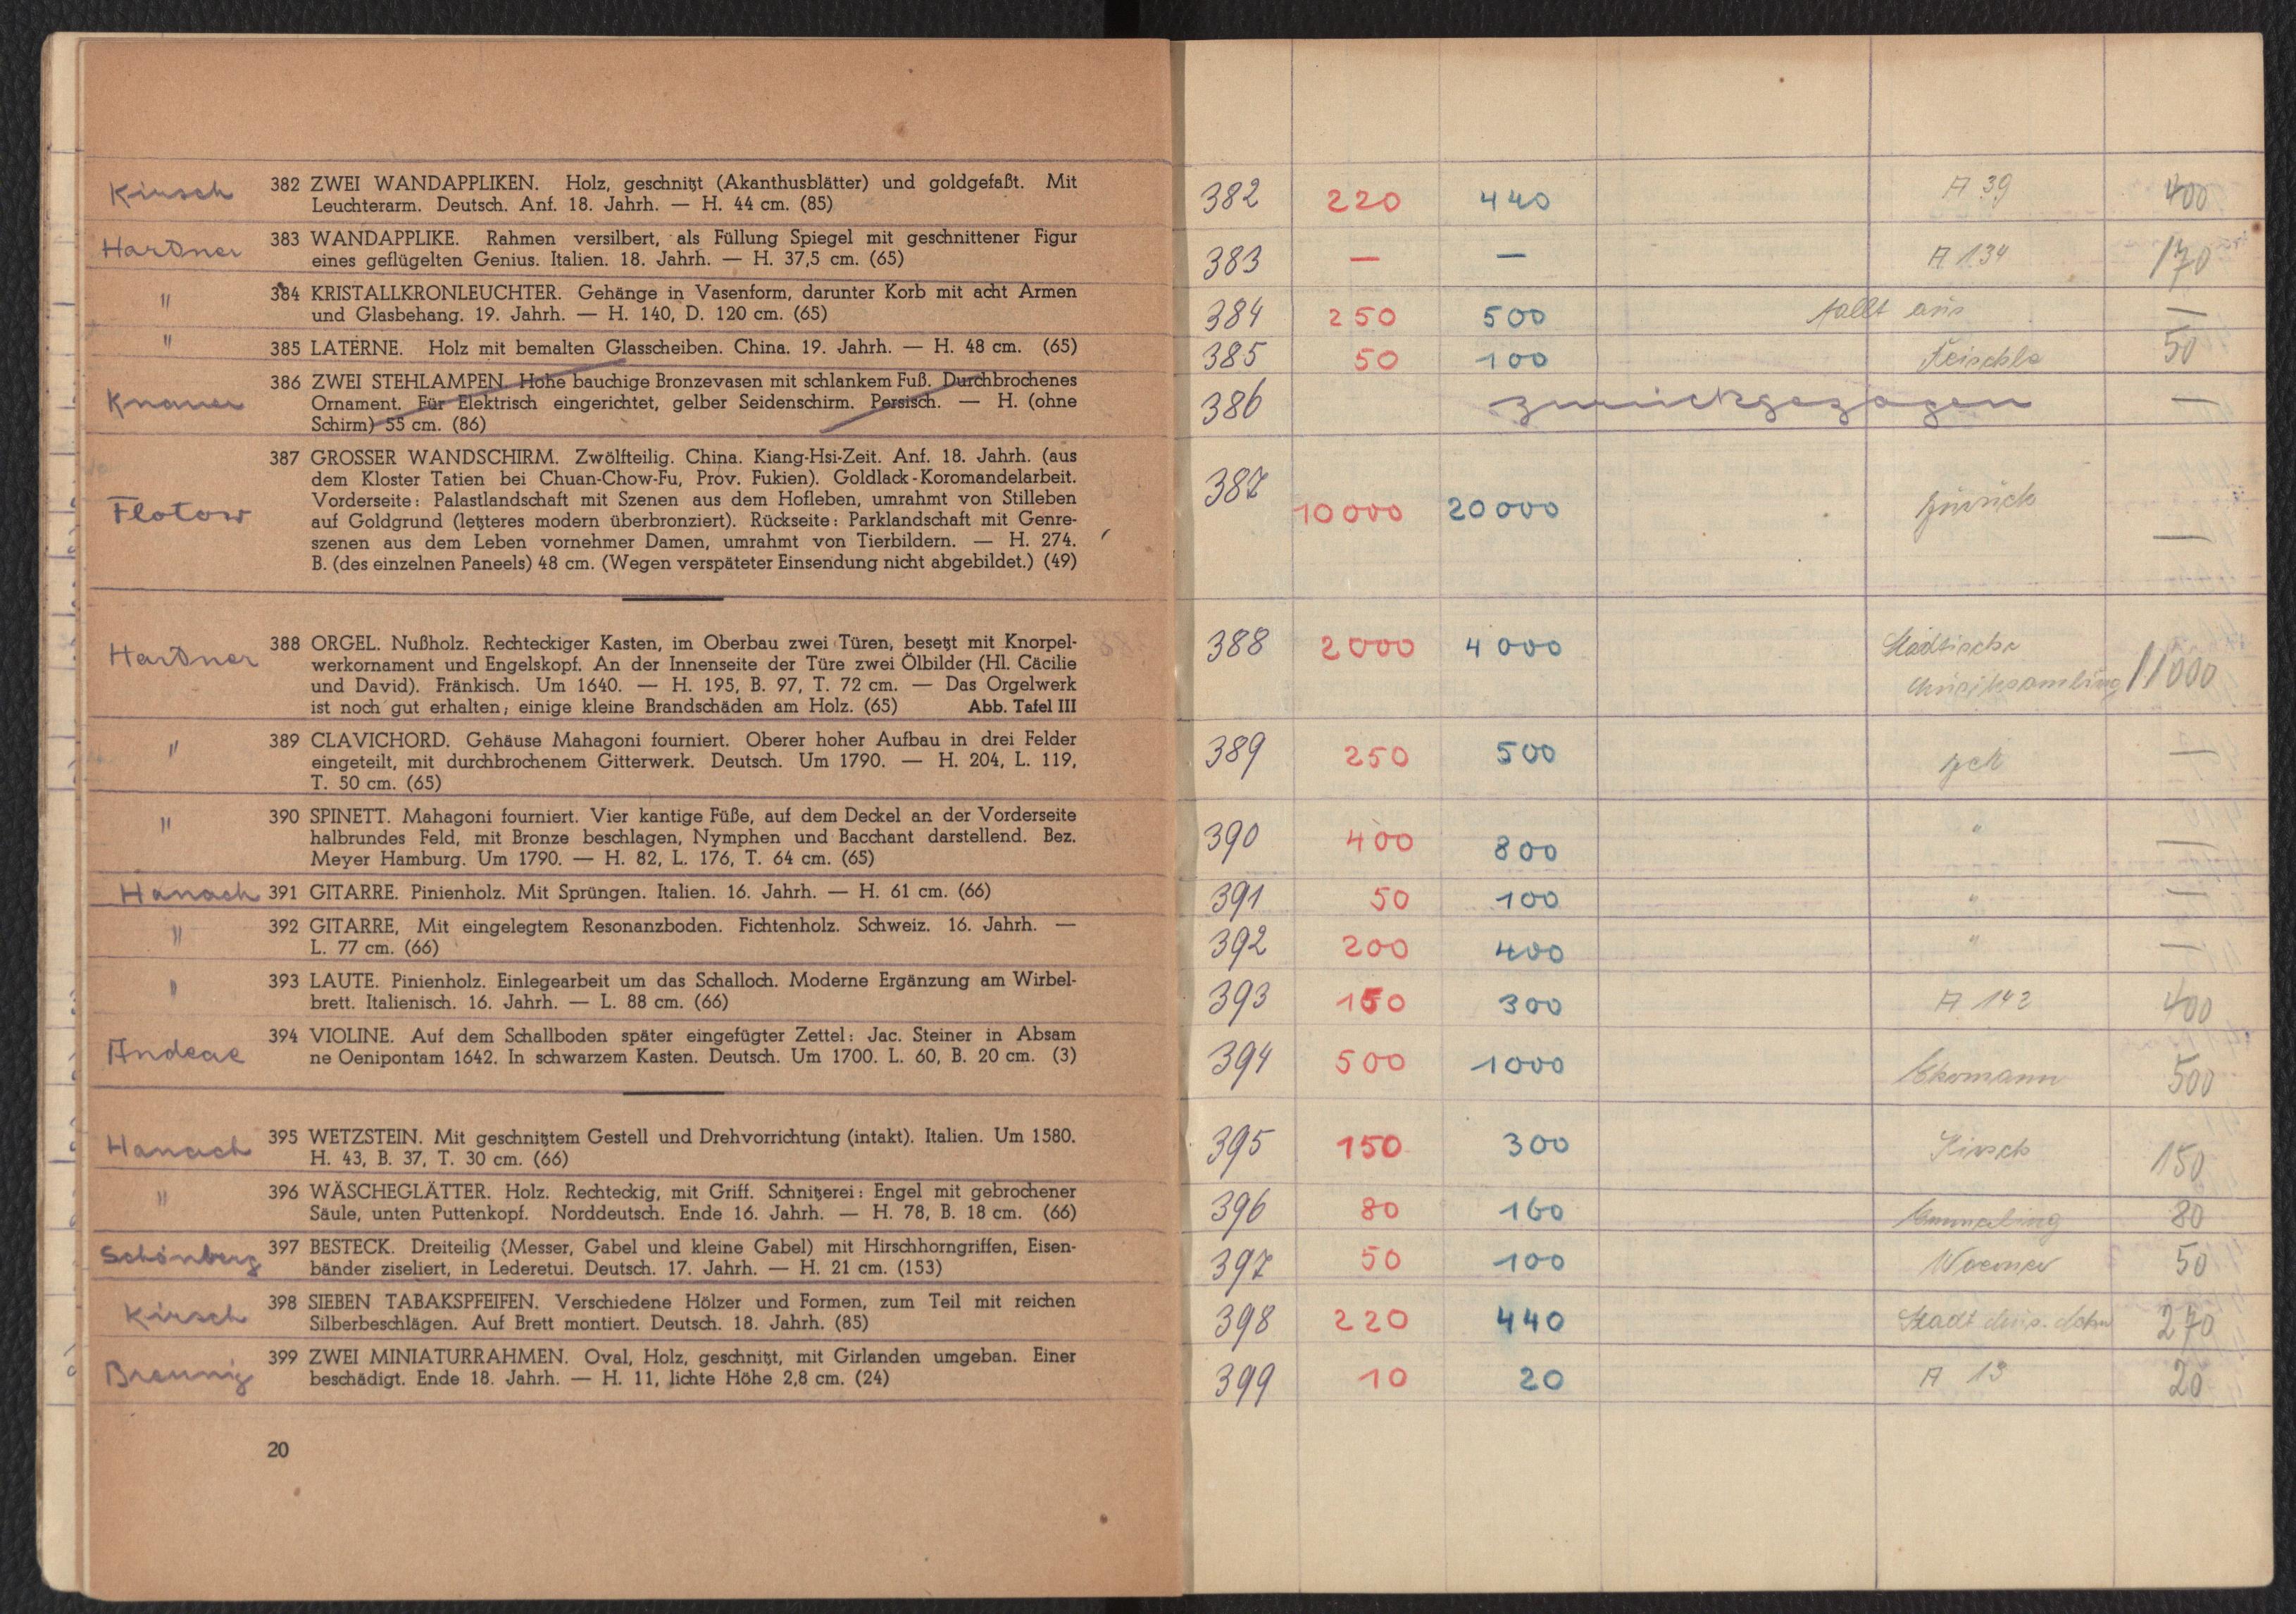 Kirsch
382 ZWEI WANDAPPLIKEN. Holz, geschnitzt (Akanthusblätter) und goldgefaßt. Mit
Leuchterarm. Deutsch. Anf. 18. Jahrh. — H. 44 cm. (85)
Hartner
383 WANDAPPLIKE. Rahmen versilbert, als Füllung Spiegel mit geschnittener Figur
eines geflügelten Genius. Italien. 18. Jahrh. — H. 37,5 cm. (65)
"
384 KRISTALLKRONLEUCHTER. Gehänge in Vasenform, darunter Korb mit acht Armen
und Glasbehang. 19. Jahrh. — H. 140, D. 120 cm. (65)
"
385 LATERNE. Holz mit bemalten Glasscheiben. China. 19. Jahrh. — H. 48 cm. (65)
Knauer
386 ZWEI STEHLAMPEN. Hohe bauchige Bronzevasen mit schlankem Fuß. Durchbrochenes
Ornament. Für Elektrisch eingerichtet, gelber Seidenschirm. Persisch. — H. (ohne
Schirm) 55 cm. (86)
Flotow
387 GROSSER WANDSCHIRM. Zwölfteilig. China. Kiang-Hsi-Zeit. Anf. 18. Jahrh. (aus
dem Kloster Tatien bei Chuan-Chow-Fu, Prov. Fukien). Goldlack-Koromandelarbeit.
Vorderseite: Palastlandschaft mit Szenen aus dem Hofleben, umrahmt von Stilleben
auf Goldgrund (letzteres modern überbronziert). Rückseite: Parklandschaft mit Genre-
szenen aus dem Leben vornehmer Damen, umrahmt von Tierbildern. — H. 274.
B. (des einzelnen Paneels) 48 cm. (Wegen verspäteter Einsendung nicht abgebildet.) (49)
Hartner
388 ORGEL. Nußholz. Rechteckiger Kasten, im Oberbau zwei Türen, besetzt mit Knorpel-
werkornament und Engelskopf. An der Innenseite der Türe zwei Ölbilder (Hl. Cäcilie
und David). Fränkisch. Um 1640. — H. 195, B. 97, T. 72 cm. — Das Orgelwerk
ist noch gut erhalten; einige kleine Brandschäden am Holz. (65) Abb. Tafel III
"
389 CLAVICHORD. Gehäuse Mahagoni fourniert. Oberer hoher Aufbau in drei Felder
eingeteilt, mit durchbrochenem Gitterwerk. Deutsch. Um 1790. — H. 204, L. 119,
T. 50 cm. (65)
"
390 SPINETT. Mahagoni fourniert. Vier kantige Füße, auf dem Deckel an der Vorderseite
halbrundes Feld, mit Bronze beschlagen, Nymphen und Bacchant darstellend. Bez.
Meyer Hamburg. Um 1790. — H. 82, L. 176, T. 64 cm. (65)
Hanach
391 GITARRE. Pinienholz. Mit Sprüngen. Italien. 16. Jahrh. — H. 61 cm. (66)
"
392 GITARRE, Mit eingelegtem Resonanzboden. Fichtenholz. Schweiz. 16. Jahrh. —
L. 77 cm. (66)
"
393 LAUTE. Pinienholz. Einlegearbeit um das Schalloch. Moderne Ergänzung am Wirbel-
brett. Italienisch. 16. Jahrh. — L. 88 cm. (66)
Andeae
394 VIOLINE. Auf dem Schallboden später eingefügter Zettel: Jac. Steiner in Absam
ne Oenipontam 1642. In schwarzem Kasten. Deutsch. Um 1700. L. 60, B. 20 cm. (3)
Hanach
395 WETZSTEIN. Mit geschnitztem Gestell und Drehvorrichtung (intakt). Italien. Um 1580.
H. 43, B. 37, T. 30 cm. (66)
"
396 WÄSCHEGLÄTTER. Holz. Rechteckig, mit Griff. Schnitzerei: Engel mit gebrochener
Säule, unten Puttenkopf. Norddeutsch. Ende 16. Jahrh. — H. 78, B. 18 cm. (66)
Schönberg
397 BESTECK. Dreiteilig (Messer, Gabel und kleine Gabel) mit Hirschhorngriffen, Eisen-
bänder ziseliert, in Lederetui. Deutsch. 17. Jahrh. — H. 21 cm. (153)
Kirsch
398 SIEBEN TABAKSPFEIFEN. Verschiedene Hölzer und Formen, zum Teil mit reichen
Silberbeschlägen. Auf Brett montiert. Deutsch. 18. Jahrh. (85)
Breunig
399 ZWEI MINIATURRAHMEN. Oval, Holz, geschnitzt, mit Girlanden umgeban. Einer
beschädigt. Ende 18. Jahrh. — H. 11, lichte Höhe 2,8 cm. (24)
20
382 220 440 A 39 400
383 — — A 134 170
384 250 500 fällt aus —
385 50 100 50
386 zurückgezogen —
387 10000 20000 zurück —
388 2000 4000 Städtische
Musiksamlung 11000
389 250 500 zck —
390 400 800 " —
391 50 100 " —
392 200 400 " —
393 150 300 A 142 400
394 500 1000 500
395 150 300 Kirsch 150
396 80 160 80
397 50 100 Woerner 50
398 220 440 Stadt 270
399 10 20 A 13 20